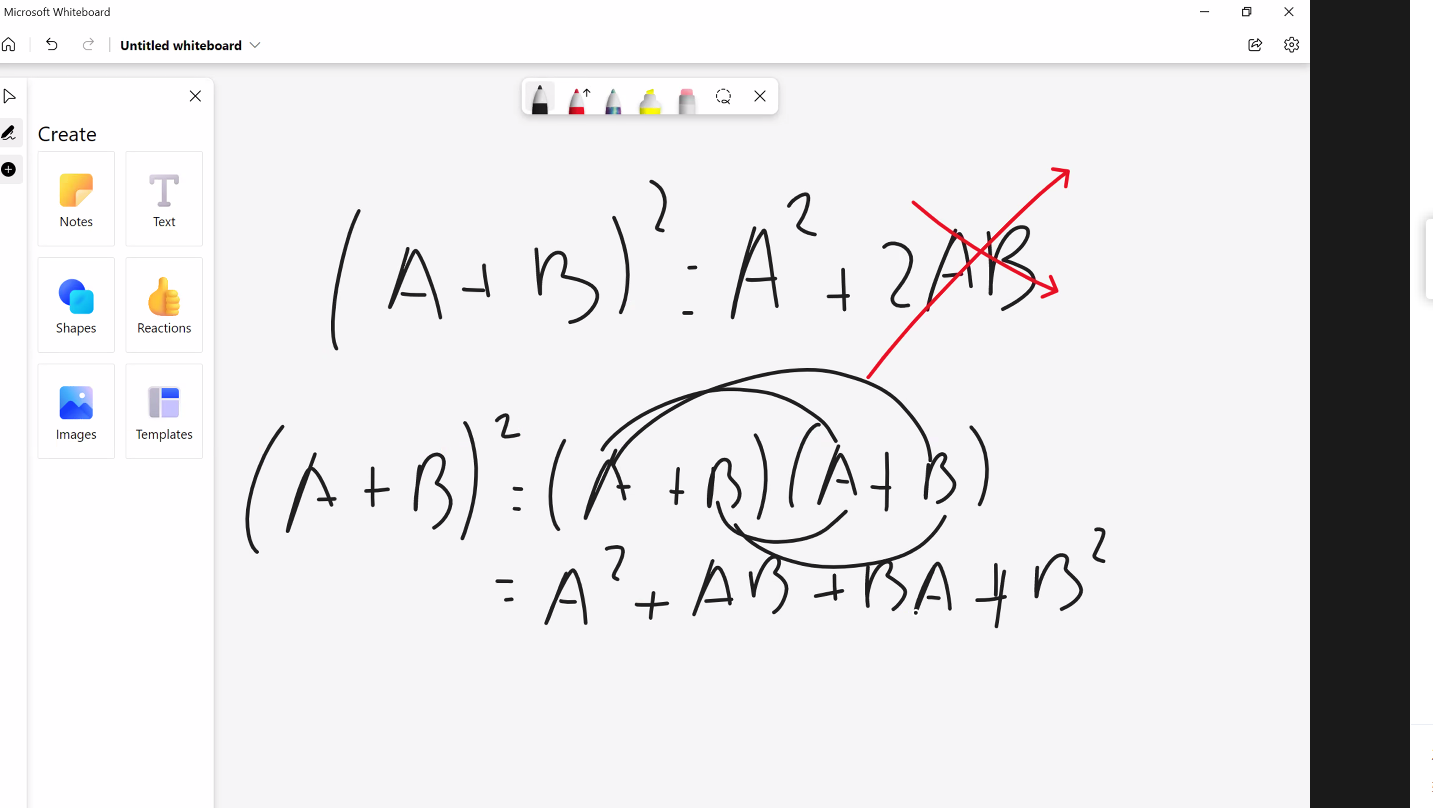 Microsoft Whiteboard
Untitled whiteboard
Create
Notes
Text
Shapes
Reactions
Images
Templates
(A + B)² = A² + 2AB
(A + B)² = (A + B)(A + B)
= A² + AB + BA + B²